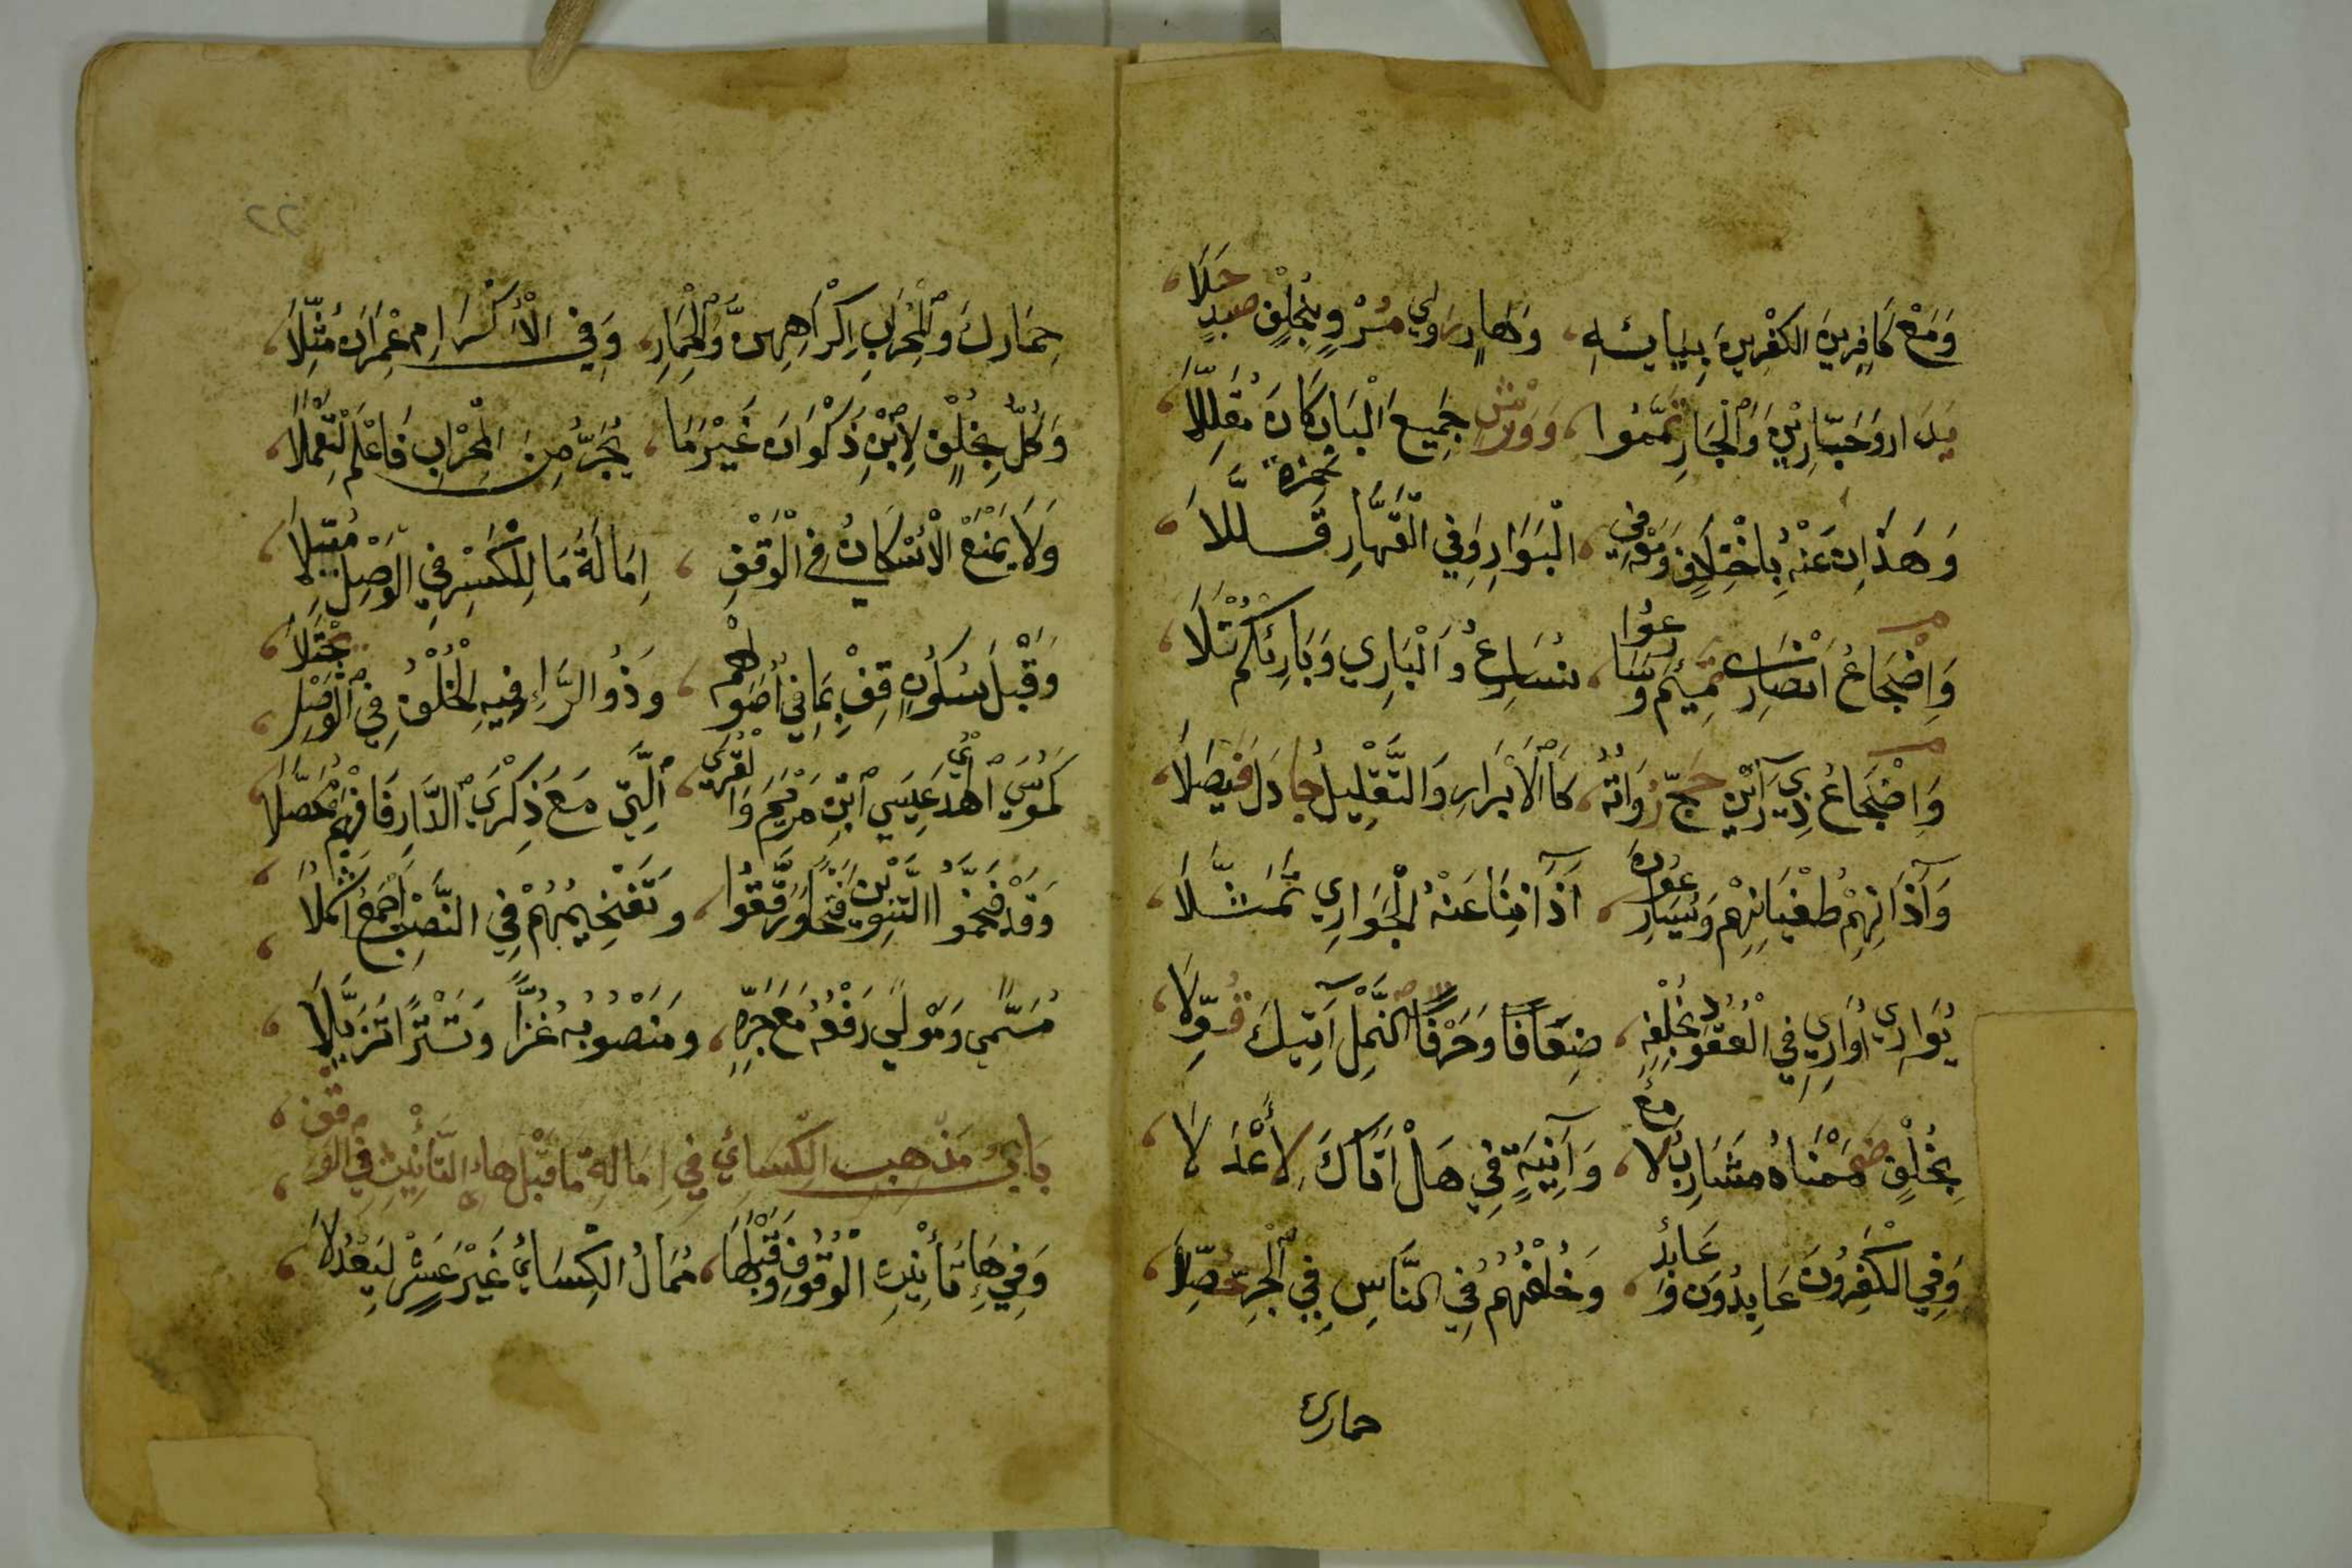 وَمَعْ كَافِرِينَ الكٰفِرِينَ بِيَايِئهِ ، وَهَارٍ رَوٰي مُرْوٍ بِخُلْفٍ صَدٍ حَلَا ،
بَدَارِ وَجَبَّارِيْنَ وَالْجَارِ تَمَّمُوا ، وَوَرْشٌ جَمِيعَ الْبَابِ كَانَ مُقَلِّلَا ،
وَهَذَانِ عَنْهُ بِاخْتِلَافٍ وَمَعْهُ فِي ، الْبَوَارِ وَفِي الْقَهَّارِ حَمْزَةُ قَلَّلَا ،
وَاِضْجَاعُ اَنْصَارِي تَمِيْمٌ وَسَارِعُوا ، نُسَارِعُ وَالْبَارِي وَبَارِئِكُمْ تَلَا ،
وَاِضْجَاعُ ذِي رَآئَيْنِ حَجَّ رُوَاتُهُ ، كَالْاَبْرَارِ وَالتَّقْلِيلُ جَادَلَ فَيْصَلَا ،
وَآذَانِهِمْ طُغْيَانِهِمْ وَيُسَارِعُونَ ، آذَانِنَا عَنْهُ الْجَوَارِي تَمَثَّلَا ،
يُوَارِي أُوَارِي فِي الْعُقُودِ بِخُلْفِهِ ، ضِعَافًا وَحَرْفَا النَّمْلِ آتِيكَ قُوِّلَا ،
بِخُلْفٍ ضَمَمْنَاهُ مَشَارِبُ لَا مِعٌ ، وَآنِيَةٍ فِي هَلْ اَتَاكَ لِأَعْدَلَا ،
وَفِي الكٰفِرُونَ عَابِدُونَ وَعَابِدٌ ، وَخُلْفُهُمْ فِي النَّاسِ فِي الْجَرِّ حُصِّلَا ،
حمارك
٢٢
حِمَارِكَ وَالْمِحْرَابِ اِكْرَاهِهِنَّ وَالْحِمَارِ ، وَفِي الْاِكْرَامِ عِمْرَانَ مُثِّلَا ،
وَكُلٌّ بِخُلْفٍ لِابْنِ ذَكْوَانَ غَيْرَ مَا ، يُجَرُّ مِنَ الْمِحْرَابِ فَاعْلَمْ لِتَعْمَلَا ،
وَلَا يَمْنَعُ الْاِسْكَانُ فِي الْوَقْفِ ، اِمَالَةَ مَا لِلْكَسْرِ فِي الْوَصْلِ مُيِّلَا ،
وَقَبْلَ سُكُونٍ قِفْ بِمَا فِي اُصُولِهِمْ ، وَذُو الرَّاءِ فِيهِ الْخُلْفُ فِي الْوَصْلِ يُجْتَلَا ،
كَمُوسَي الْهُدَي عِيسَي ابْنِ مَرْيَمَ وَالْقُرَي ، الَّتِي مَعَ ذِكْرَي الدَّارِ فَافْهَمْ مُحَصِّلَا ،
وَقَدْ فَخَّمُوا التَّنْوِينَ وَقْفًا وَرَقَّقُوا ، وَتَفْخِيمُهُمْ فِي النَّصْبِ اَجْمَعُ اَشْمُلَا ،
مُسَمًّي وَمَوْلًي رَفْعُهُ مَعَ جَرِّهِ ، وَمَنْصُوبُهُ غُزًّا وَتَتْرًا تَزَيَّلَا ،
بَابُ مَذْهِبِ الْكِسَائِيِّ فِي اِمَالَةِ مَا قَبْلَ هَاءِ التَّأنِيثِ فِي الوَقْفِ ،
وَفِي هَاءِ تَأْنِيثِ الْوُقُوفِ وَقَبْلَهَا ، مُمَالُ الْكِسَائِي غَيْرَ عَشْرٍ لِيَعْدِلَا ،